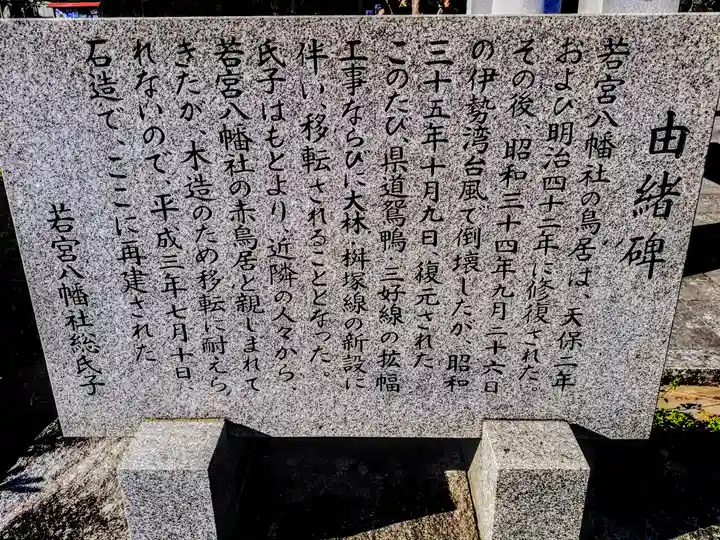 由緒碑
若宮八幡社の鳥居は、天保二年
および明治四十二年に修復された
その後、昭和三十四年九月二十六日
の伊勢湾台風で倒壊したが、昭和
三十五年十月九日、復元された
このたび、県道鴛鴨、三好線の拡幅
工事ならびに大林・桝塚線の新設に
伴い、移転されることとなった、
氏子はもとより、近隣の人々から、
若宮八幡社の赤鳥居と親しまれて
きたが、木造のため移転に耐えら
れないので、平成三年七月十日、
石造で、ここに再建された
若宮八幡社総氏子